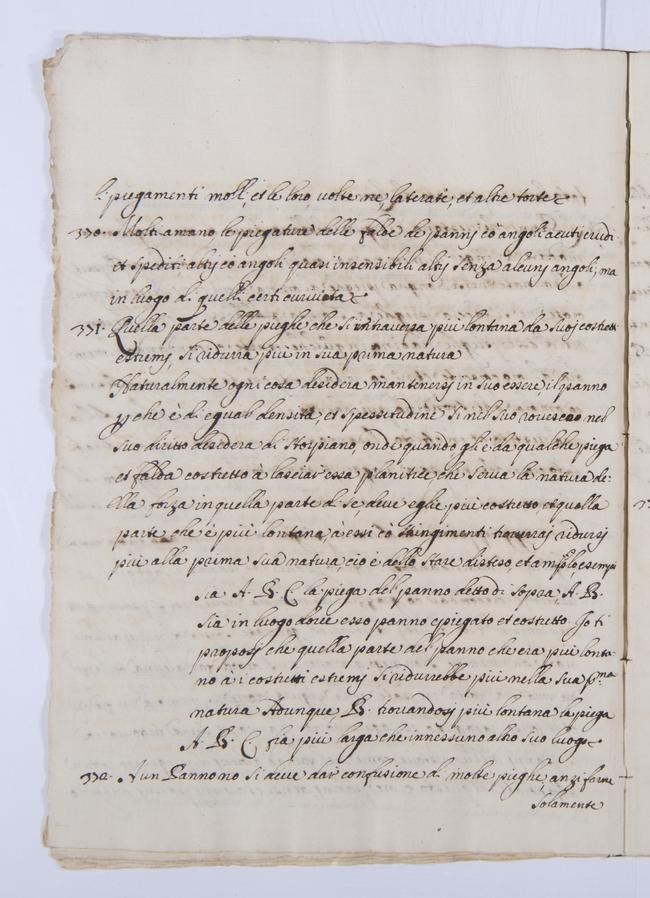 li piegamenti molli, et le loro volte ne, laterate, et altre torte
330. Molti amano, le piegature delle falde de panni co angoli acuti, crudi
et spediti, altri co angoli quasi insensibili altri senza alcuni angoli, ma
in luogo di quelli certi curvità
331. Quella parte delle pieghe che si intraversa più lontana da suoi costretti
estremi, si ridurrà più in sua prima natura
Naturalmente ogni cosa desidera mantenersi in suo essere, il panno
pche è di equal densità, et spessitudine si nel suo rovescio nel
suo diritto desidera di star piano, onde quando gli è da qualche piega
et falda costretto à lasciar essa planitie che serva la natura de
lla forza in quella parte di se, dove egli è più costretto, et quella
parte che è più lontana, à essi costringimenti troverrai ridursi
più alla prima sua natura, cio è dello stare disteso, et
sia A. B. C la piega del panno detto di sopra, A. B.
sia in luogo dove esso panno è piegato et costretto. Io ti
proposi che quella parte del panno che era più lonta-
no à i costretti estremi si ridurrebbe più nella sua pma
natura Adunque, B. trovandosi più lontana la piega
A. B. C fia più larga che in nessuno altro suo luogo
332. A un Panno no si deve dar confusione di molte pieghe, anzi farne
solamente